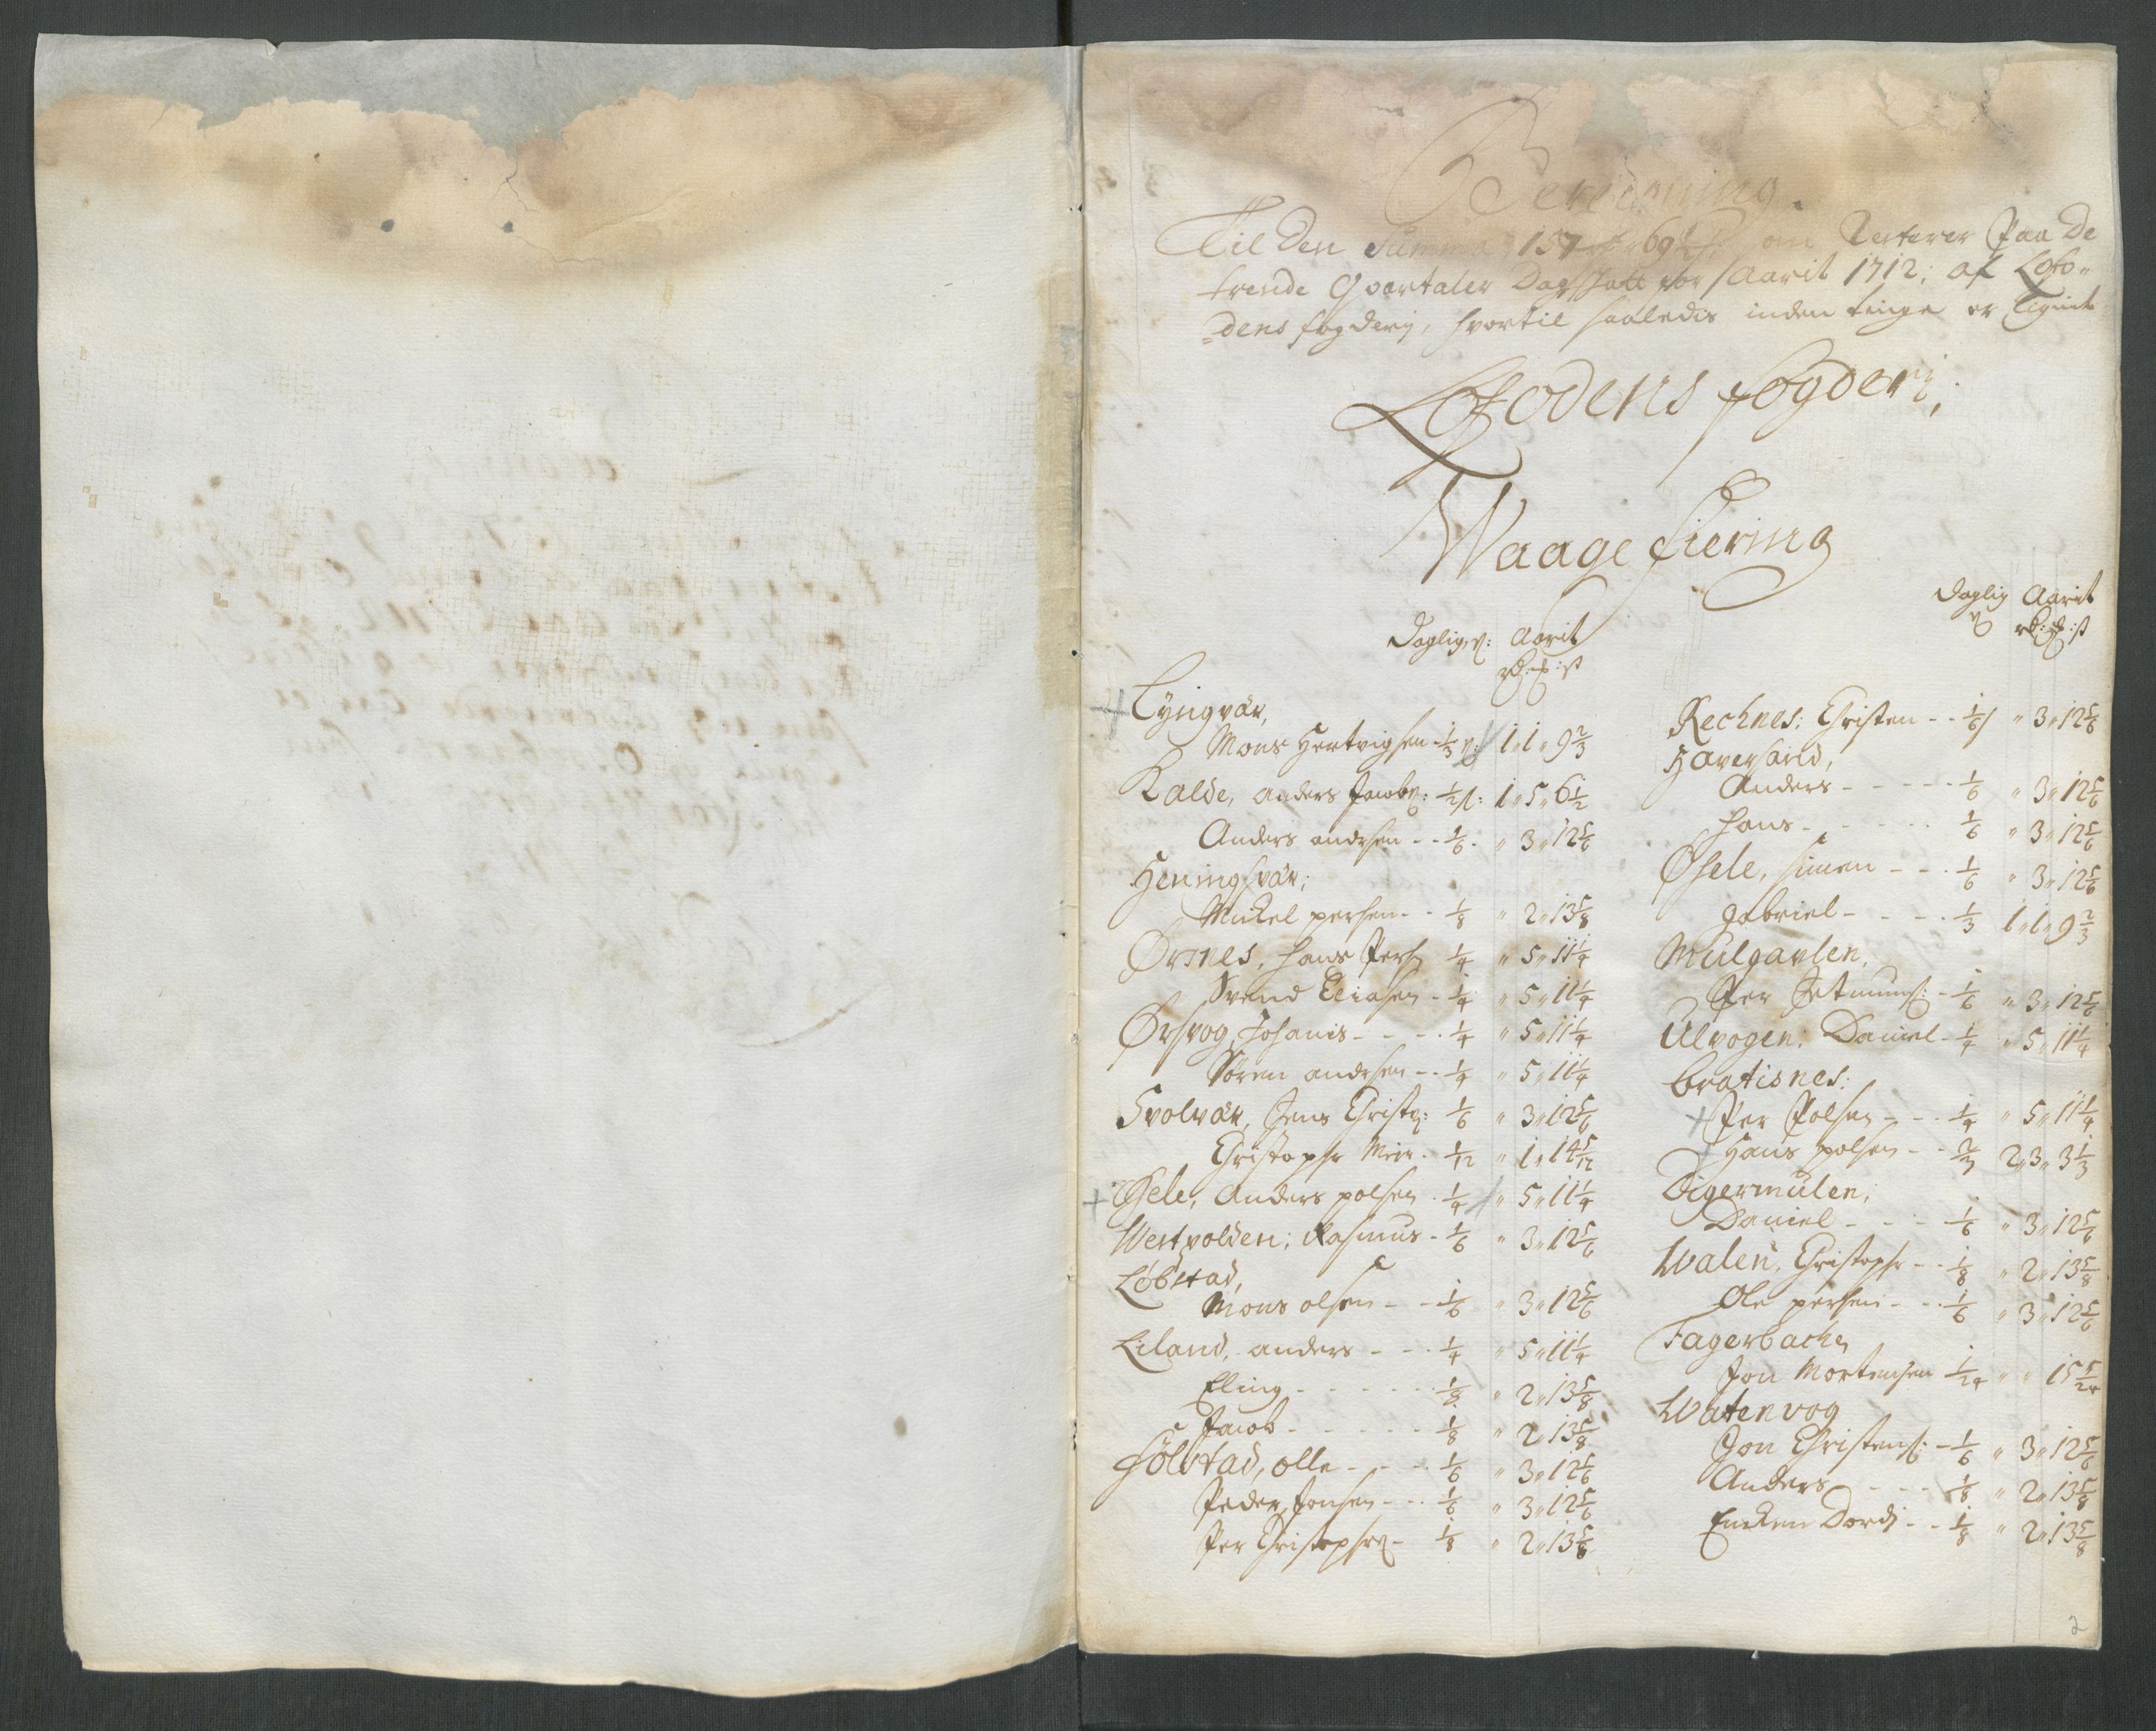 Beregning.
Til Den Summa 157 69½ om Resterer Paa De
trende Qvartaler Dagskatt for Aarit 1712; af Lofo„
„dens fogderij, hvortil saaledis inden tinge er Lignit
Lofodens fogderi;
Waage fiering
Daglig, ß: Aarit
rd: : ß
Lyngvär,
Mons Hertvigsen ⅓ ß: 1„ 1„ 9⅔
Kalde, anders Jacobs: ½ ß: 1„ 5„ 6½
Anders andersen - - ⅙. „ 3„ 12⅚
Heningsvär;
Mickel persen - - ⅛ „ 2„ 13⅝
Örsnes, hans Pers ¼ „ 5„ 11¼
Svend Eliasen - ¼ „ 5„ 11¼
Örsvog, Johanis - - - ¼ „ 5„ 11¼
Sören andersen - - ¼ „ 5„ 11¼
Svolvär, Jens Christ: ⅙ „ 3„ 12⅚
Christopher Meier . 1/12 „ 1„ 14 5/12
Osele, Anders polsen . ¼ „ 5„ 11¼
Westpolden; Rasmus - ⅙ „ 3„ 12⅚
Löbstad,
Mons olsen - - ⅙ „ 3„ 12⅚
Liland, anders - - - ¼ „ 5„ 11¼
Eling - - - - - ⅛ „ 2„ 13⅝
Jacob - - - - - ⅛ „ 2„ 13⅝
Hölstad, olle - - - ⅙ „ 3„ 12⅚
Peder Jonsen - - - ⅙ „ 3„ 12⅚
Per Christophers - ⅛ „ 2„ 13⅝
Daglig Aarit
ß rd: : ß
Rechnes; Christen - - ⅙ „ 3„ 12⅚
Haversand,
Anders - - - - - ⅙ „ 3„ 12⅚
hans - - - - - ⅙ „ 3„ 12⅚
Osele, simen - - - ⅙ „ 3„ 12⅚
gabriel - - - - ⅓ 1„ 1„ 9⅔
Mülgavlen,
Per Jetmunds: - ⅙ „ 3„ 12⅚
Ülvogen; Daniel - ¼ „ 5„ 11¼
bratisnes;
Per Polsen - - - ¼ „ 5„ 11¼
Hans polsen - - ⅔ 2„ 3„ 3⅓
Digermülen;
Daniel - - - ⅙ „ 3„ 12⅚
Walen, Christopher - - ⅛ „ 2„ 13⅝
Ole persen - - - ⅙ „ 3„ 12⅚
Fagerbachen
Jon Mortensen 1/24 „ „ 15 5/24
Watenvog
Jon Christens: - ⅙ „ 3„ 12⅚
Anders - - - ⅛ „ 2„ 13⅝
Encken Dordi - - ⅛ „ 2„ 13⅝
2